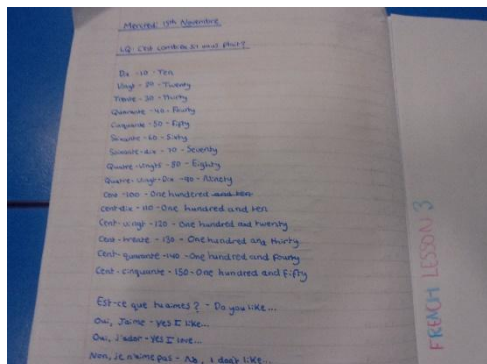 Mercredi 15th Novembre
LQ: C'est combien
Dix - 10 - Ten
Vingt - 20 - Twenty
Trente - 30 - Thirty
Quarante - 40 - Fourty
Cinquante - 50 - Fifty
Soixante - 60 - Sixty
Soixante-dix - 70 - Seventy
Quatre-vingts - 80 - Eighty
Quatre-vingt-Dix - 90 - Ninety
Cent - 100 - One hundered and ten
Cent-dix - 110 - One hundred and ten
Cent-vingt - 120 - One hundred and twenty
Cent-trente - 130 - One hundred and thirty
Cent-quarante - 140 - One hundred and fourty
Cent-cinquante - 150 - One hundred and fifty
Est-ce que tu aimes? - Do you like...
Oui, J'aime - Yes I like...
Oui, J'ador - Yes I love...
Non, je n'aime pas - No, I don't like...
FRENCH LESSON 3